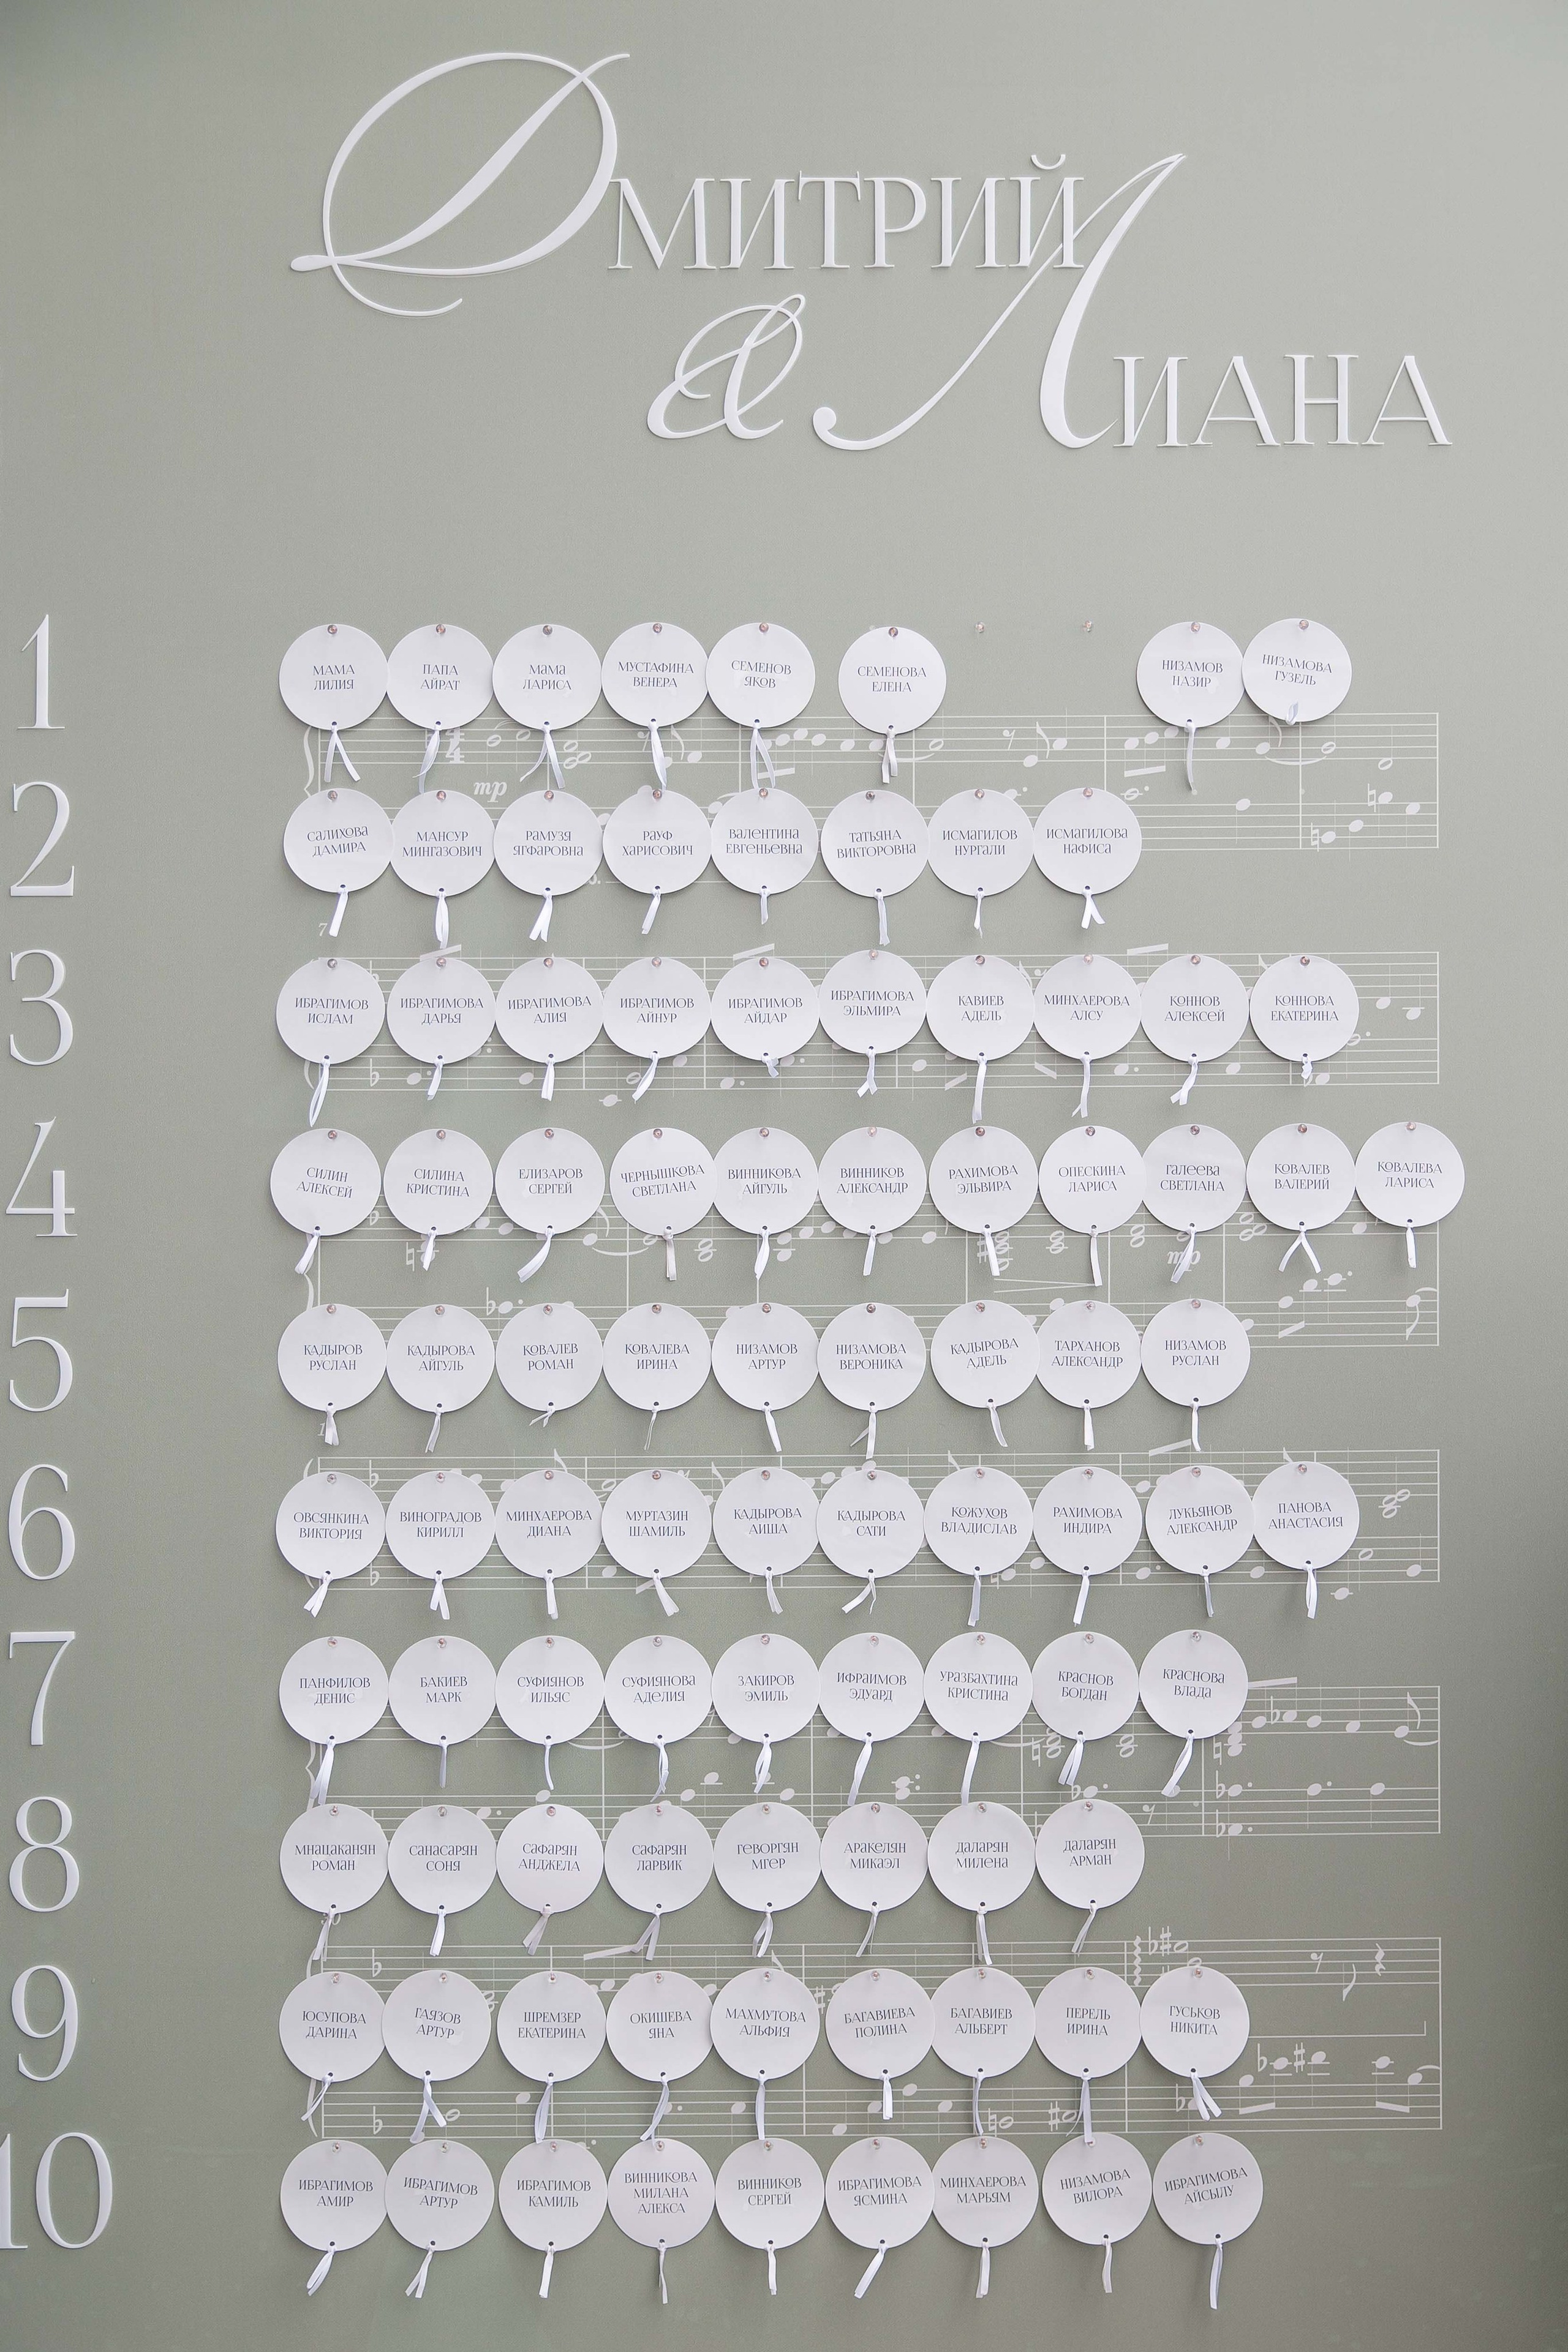 Дмитрий
&
Лиана
1
МАМА ЛИЛИЯ
ПАПА АЙРАТ
мама ЛАРИСА
МУСТАФИНА ВЕНЕРА
СЕМЕНОВ ЯКОВ
СЕМЕНОВА ЕЛЕНА
НИЗАМОВ НАЗИР
НИЗАМОВА ГУЗЕЛЬ
mp
2
САЛИХОВА ДАМИРА
МАНСУР МИНГАЗОВИЧ
РАМУЗЯ ЯГФАРОВНА
РАУФ ХАРИСОВИЧ
ВАЛЕНТИНА ЕВГЕНЬЕВНА
ТАТЬЯНА ВИКТОРОВНА
ИСМАГИЛОВ НУРГАЛИ
ИСМАГИЛОВА НАФИСА
7
3
ИБРАГИМОВ ИСЛАМ
ИБРАГИМОВА ДАРЬЯ
ИБРАГИМОВА АЛИЯ
ИБРАГИМОВ АЙНУР
ИБРАГИМОВ АЙДАР
ИБРАГИМОВА ЭЛЬМИРА
КАВИЕВ АДЕЛЬ
МИНХАЕРОВА АЛСУ
КОННОВ АЛЕКСЕЙ
КОННОВА ЕКАТЕРИНА
4
СИЛИН АЛЕКСЕЙ
СИЛИНА КРИСТИНА
ЕЛИЗАРОВ СЕРГЕЙ
ЧЕРНЫШКОВА СВЕТЛАНА
ВИННИКОВА АЙГУЛЬ
ВИННИКОВ АЛЕКСАНДР
РАХИМОВА ЭЛЬВИРА
ОПЕСКИНА ЛАРИСА
ГАЛЕЕВА СВЕТЛАНА
КОВАЛЕВ ВАЛЕРИЙ
КОВАЛЕВА ЛАРИСА
5
КАДЫРОВ РУСЛАН
КАДЫРОВА АЙГУЛЬ
КОВАЛЕВ РОМАН
КОВАЛЕВА ИРИНА
НИЗАМОВ АРТУР
НИЗАМОВА ВЕРОНИКА
КАДЫРОВА АДЕЛЬ
ТАРХАНОВ АЛЕКСАНДР
НИЗАМОВ РУСЛАН
6
ОВСЯНКИНА ВИКТОРИЯ
ВИНОГРАДОВ КИРИЛЛ
МИНХАЕРОВА ДИАНА
МУРТАЗИН ШАМИЛЬ
КАДЫРОВА АИША
КАДЫРОВА САТИ
КОЖУХОВ ВЛАДИСЛАВ
РАХИМОВА ИНДИРА
ЛУКЬЯНОВ АЛЕКСАНДР
ПАНОВА АНАСТАСИЯ
7
ПАНФИЛОВ ДЕНИС
БАКИЕВ МАРК
СУФИЯНОВ ИЛЬЯС
СУФИЯНОВА АДЕЛИЯ
ЗАКИРОВ ЭМИЛЬ
ИФРАИМОВ ЭДУАРД
УРАЗБАХТИНА КРИСТИНА
КРАСНОВ БОГДАН
КРАСНОВА ВЛАДА
8
МНАЦАКАНЯН РОМАН
САНАСАРЯН СОНЯ
САФАРЯН АНДЖЕЛА
САФАРЯН ЛАРВИК
ГЕВОРГЯН МГЕР
АРАКЕЛЯН МИКАЭЛ
ДАЛАРЯН МИЛЕНА
ДАЛАРЯН АРМАН
9
ЮСУПОВА ДАРИНА
ГАЯЗОВ АРТУР
ШРЕМЗЕР ЕКАТЕРИНА
ОКИШЕВА ЯНА
МАХМУТОВА АЛЬФИЯ
БАГАВИЕВА ПОЛИНА
БАГАВИЕВ АЛЬБЕРТ
ПЕРЕЛЬ ИРИНА
ГУСЬКОВ НИКИТА
10
ИБРАГИМОВ АМИР
ИБРАГИМОВ АРТУР
ИБРАГИМОВ КАМИЛЬ
ВИННИКОВА МИЛАНА АЛЕКСА
ВИННИКОВ СЕРГЕЙ
ИБРАГИМОВА ЯСМИНА
МИНХАЕРОВА МАРЬЯМ
НИЗАМОВА ВИЛОРА
ИБРАГИМОВА АЙСЫЛУ